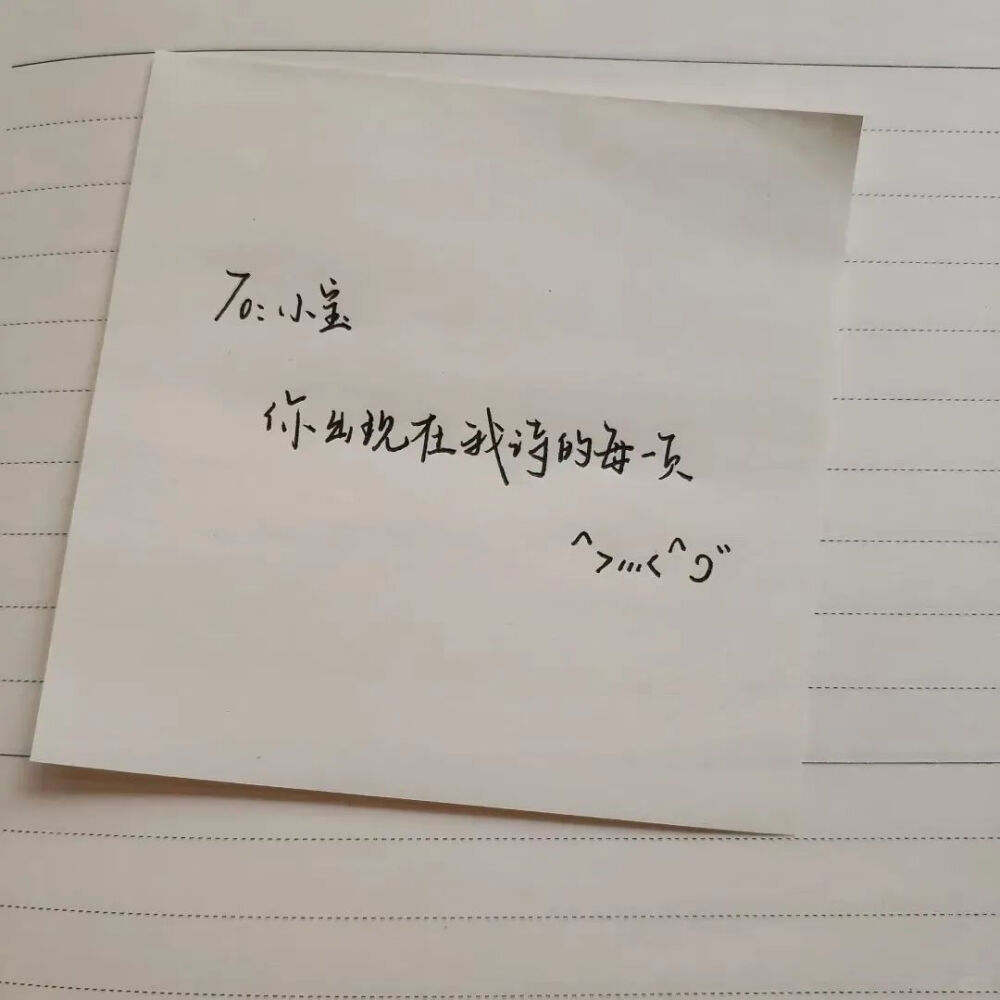 To: 小宝
你出现在我诗的每一页
^>...<^Ɔ"